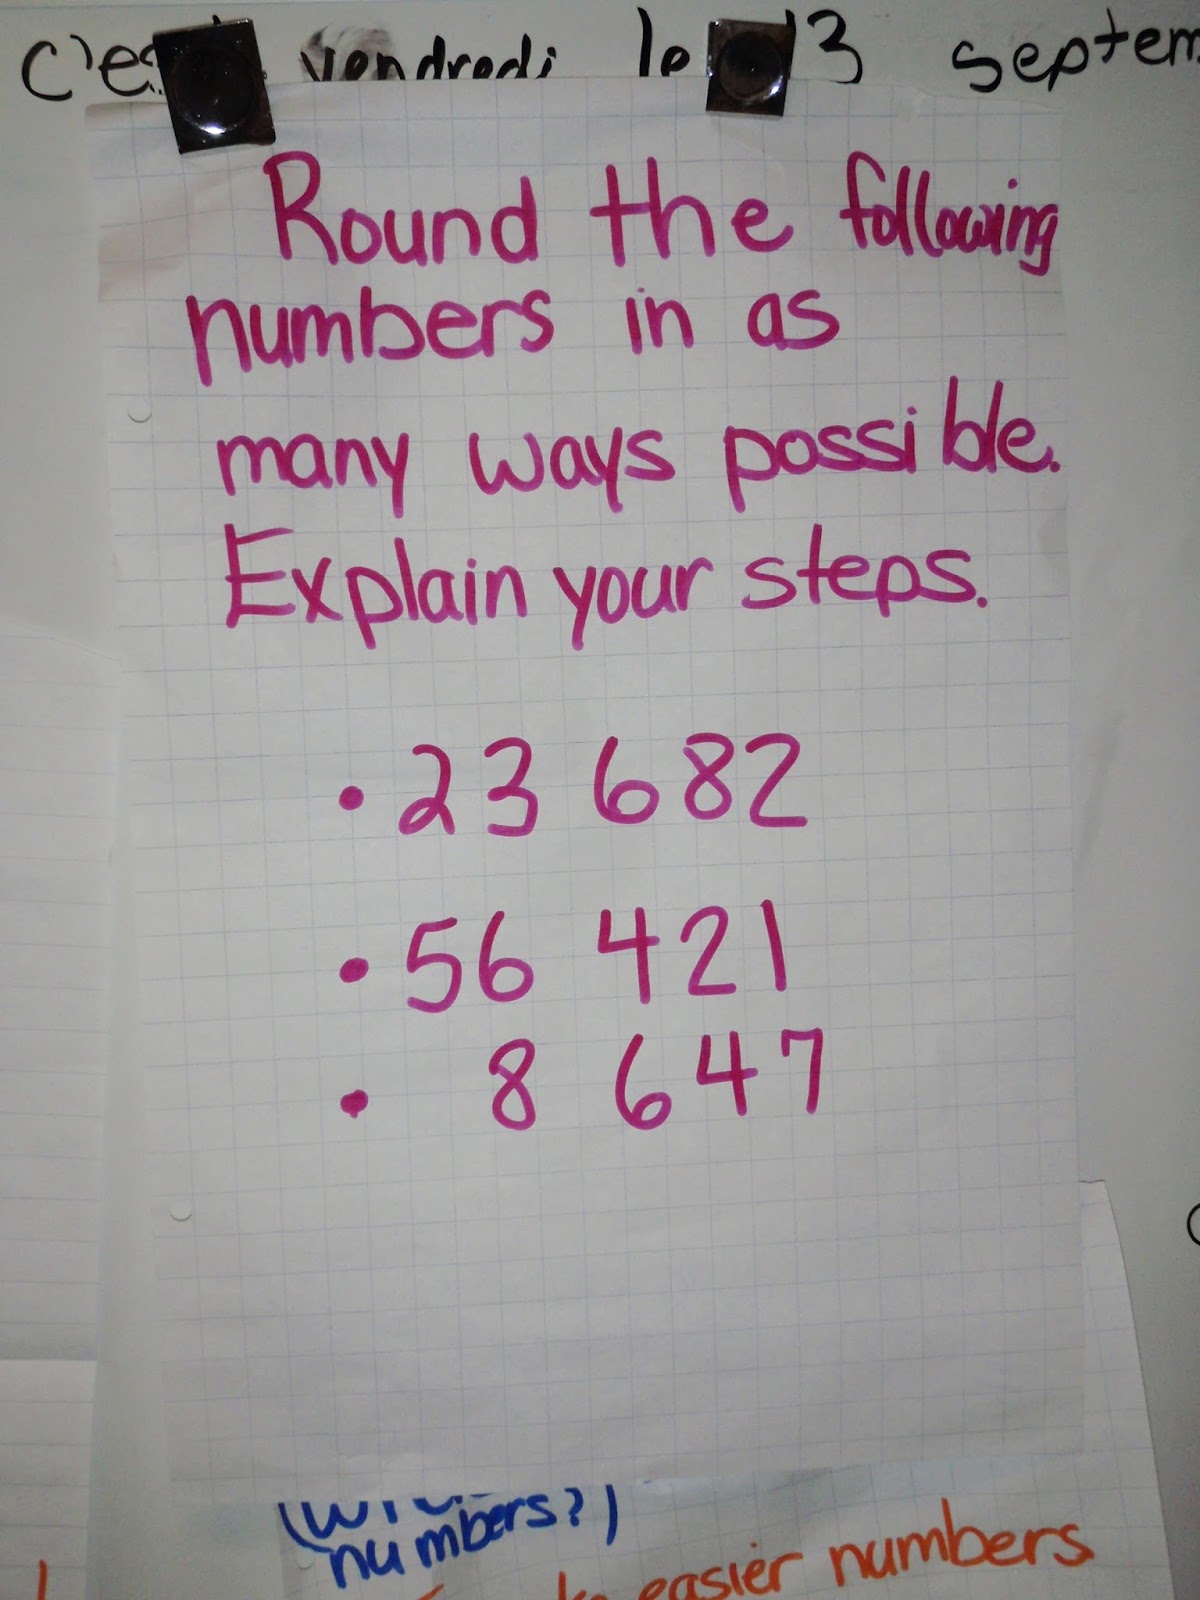 vendredi le 13 septem
Round the following
numbers in as
many ways possible.
Explain your steps.
• 23 682
• 56 421
• 8 647
numbers?)
easier numbers